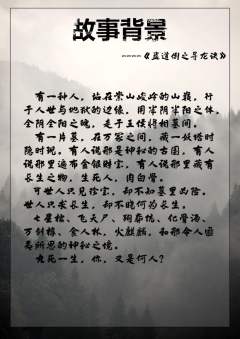 故事背景
----《盗道倒之寻龙诀》
有一种人，站在崇山峻岭的山巅，行
于人世与地狱的边缘，用半阴半阳之体，
全阴全阳之魄，走于王侯将相墓间。
有一片墓，在万冢之间，藏一妖塔时
隐时现，有人说那是神秘的古国，有人
说那里遍布金银财宝，有人说那里藏有
长生之物，生死人，肉白骨。
可世人只见珍宝，却不知墓里凶险。
世人只求长生，却不晓何为长生。
七星棺、飞天尸、狗奉坑、化骨海、
万剑椁、食人林，火麒麟，和那令人匪
夷所思的神秘之境。
九死一生，你，又是何人？